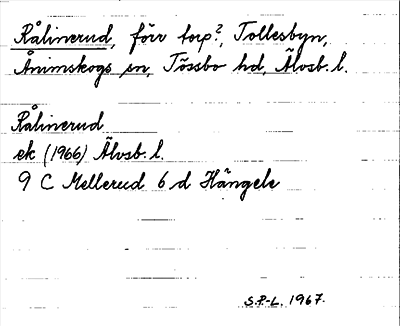 Rålinerud, förr torp?, Tollesbyn,
Ånimskogs sn, Tössbo hd, Älvsb. l.
Rålinerud
ek (1966) Älvsb. l.
9 C Mellerud 6 d Hängele
S.P-L. 1967.